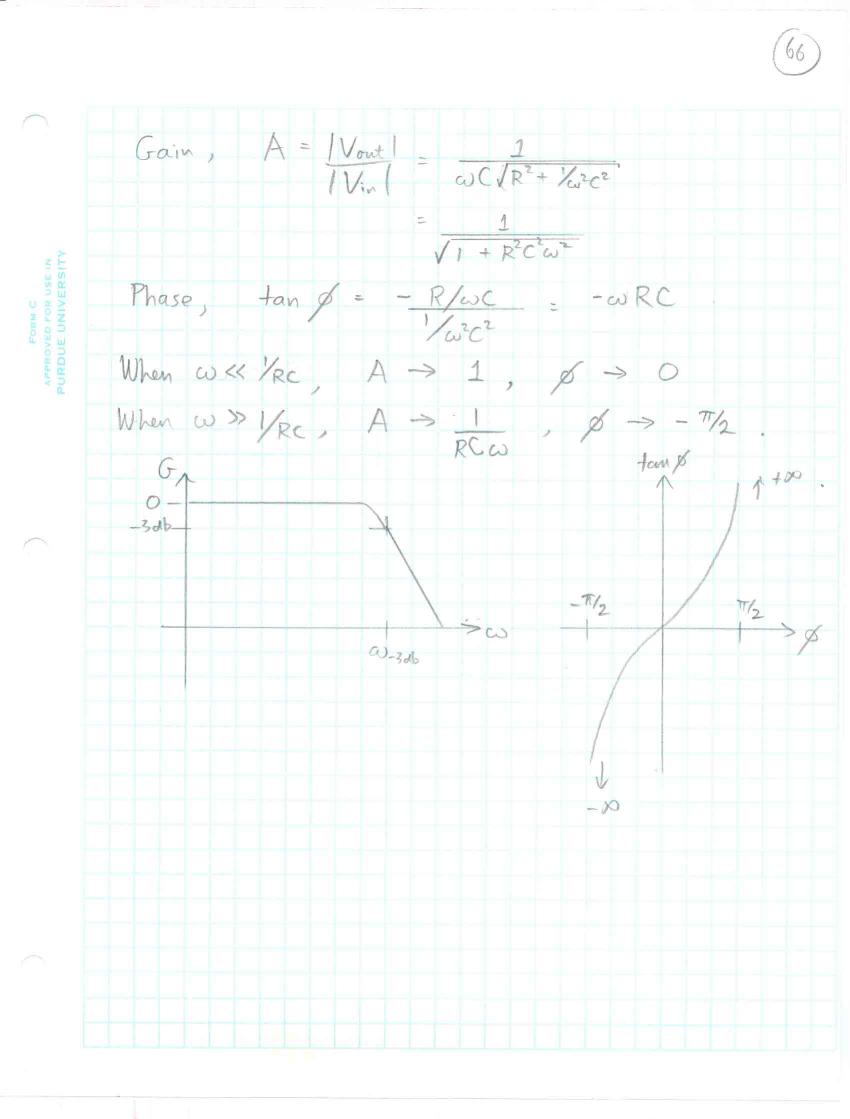 66
FORM C
APPROVED FOR USE IN
PURDUE UNIVERSITY
Gain, A = |Vout| / |Vin| = 1 / ωC√R² + 1/ω²C²
= 1 / √1 + R²C²ω²
Phase, tan ϕ = - R/ωC / 1/ω²C² = -ωRC
When ω << 1/RC, A → 1, ϕ → 0
When ω >> 1/RC, A → 1 / RCω, ϕ → - π/2.
G
0
-3db
ω
ω-3db
tan ϕ
↑ +∞
-π/2
π/2
ϕ
↓
-∞